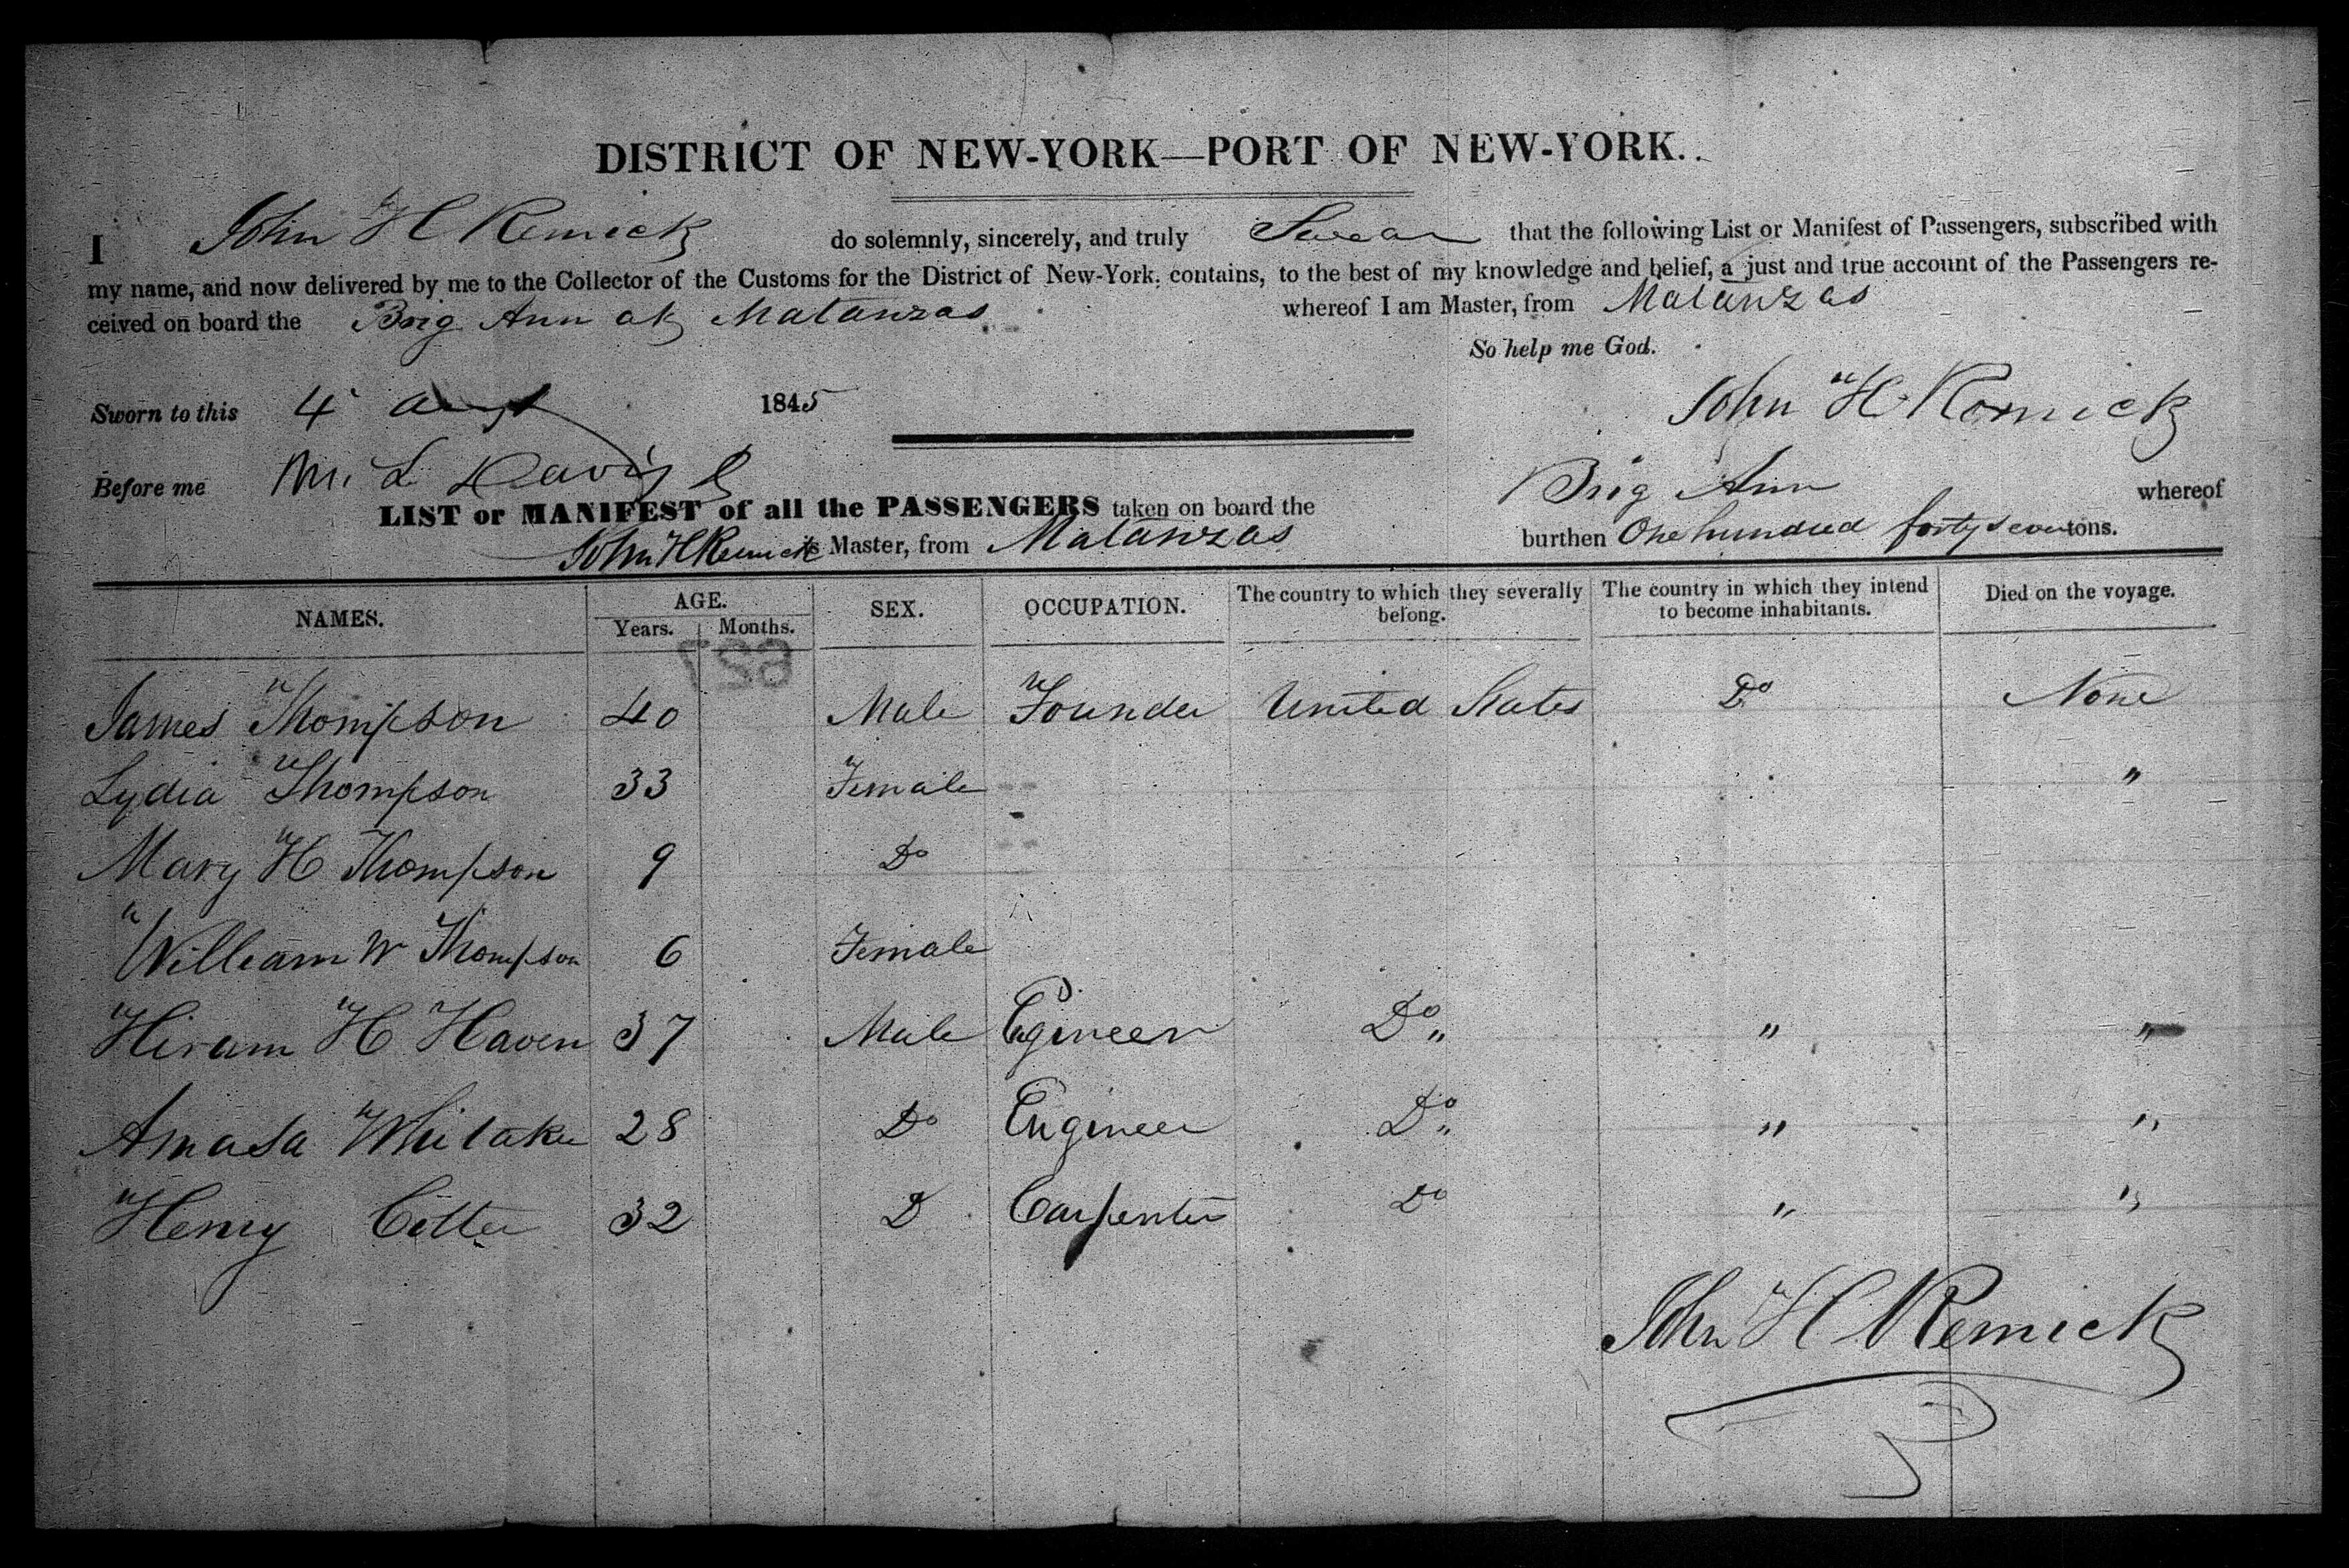 DISTRICT OF NEW-YORK—PORT OF NEW-YORK.
I John H Remick do solemnly, sincerely, and truly Swear that the following List or Manifest of Passengers, subscribed with
my name, and now delivered by me to the Collector of the Customs for the District of New-York, contains, to the best of my knowledge and belief, a just and true account of the Passengers re-
ceived on board the Brig Ann at Matanzas whereof I am Master, from Matanzas
So help me God.
Sworn to this 4 Augt 1845
John H Remick
Before me M. L Davis
LIST or MANIFEST of all the PASSENGERS taken on board the Brig Ann whereof
John H Remick is Master, from Matanzas burthen One hundred forty seven tons.
NAMES. AGE. SEX. OCCUPATION. The country to which they severally belong. The country in which they intend to become inhabitants. Died on the voyage.
Years. Months.
627
James Thompson 40 Male Founder United States Do None
Lydia Thompson 33 Female "
Mary H Thompson 9 Do
William W Thompson 6 Female
Hiram H Haven 37 Male Egineer Do " " "
Amasa Whitaker 28 Do Engineer Do " " "
Henry 32 D Carpenter Do " "
John H Remick